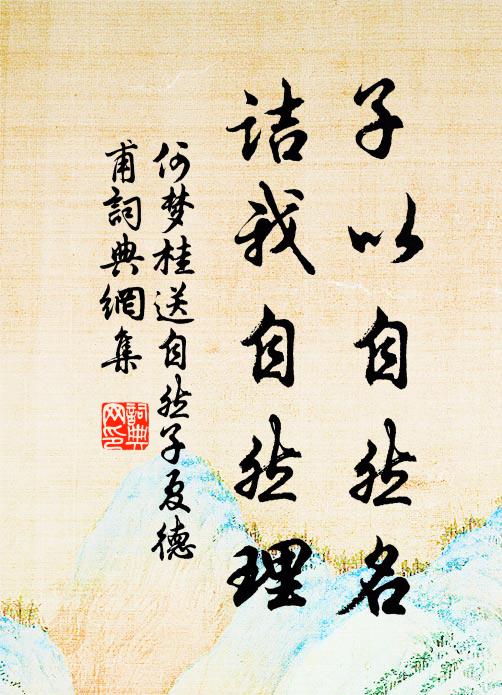 子以自然名
诘我自然理
何梦桂送自然子夏德
甫詞典網集
詞典
网印